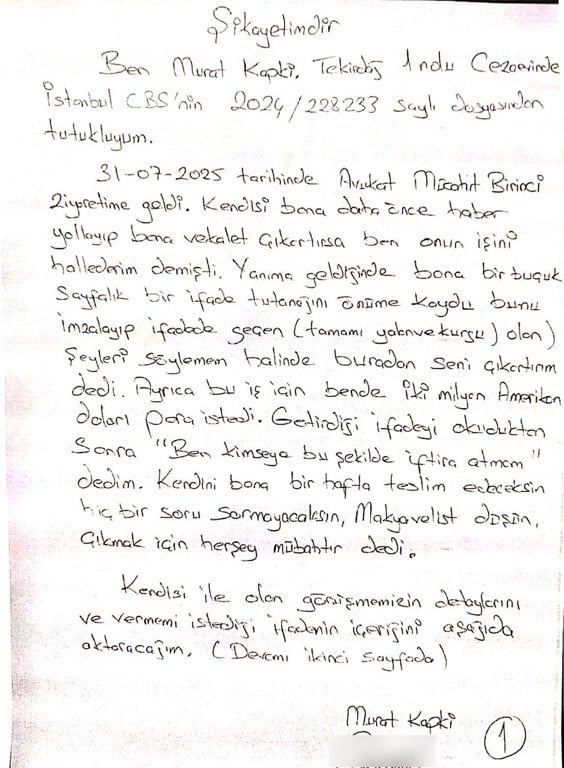 Şikayetimdir
Ben Murat Kapki. Tekirdağ 1 nolu Cezaevinde
İstanbul CBS'nin 2024/228233 sayılı dosyasından
tutukluyum.
31-07-2025 tarihinde Avukat Mücahit Birinci
Ziyaretime geldi. Kendisi bana daha önce haber
yollayıp bana vekalet çıkartırsa ben onun işini
hallederim demişti. Yanıma geldiğinde bana bir buçuk
Sayfalık bir ifade tutanağını önüme koydu bunu
imzalayıp ifadede geçen (tamamı yalan ve kurgu) olan)
Şeyleri söylemem halinde buradan seni çıkartırım
dedi. Ayrıca bu iş için bende iki milyon Amerikan
doları para istedi. Getirdiği ifadeyi okuduktan
Sonra "Ben kimseye bu şekilde iftira atmam"
dedim. Kendini bana bir hafta teslim edeceksin
hiç bir soru sormayacaksın, Makyavelist düşün,
Çıkmak için herşey mübahtır dedi.
Kendisi ile olan görüşmemizin detaylarını
ve vermemi istediği ifadenin içeriğini aşağıda
aktaracağım. (Devamı ikinci sayfada)
Murat Kapki
1